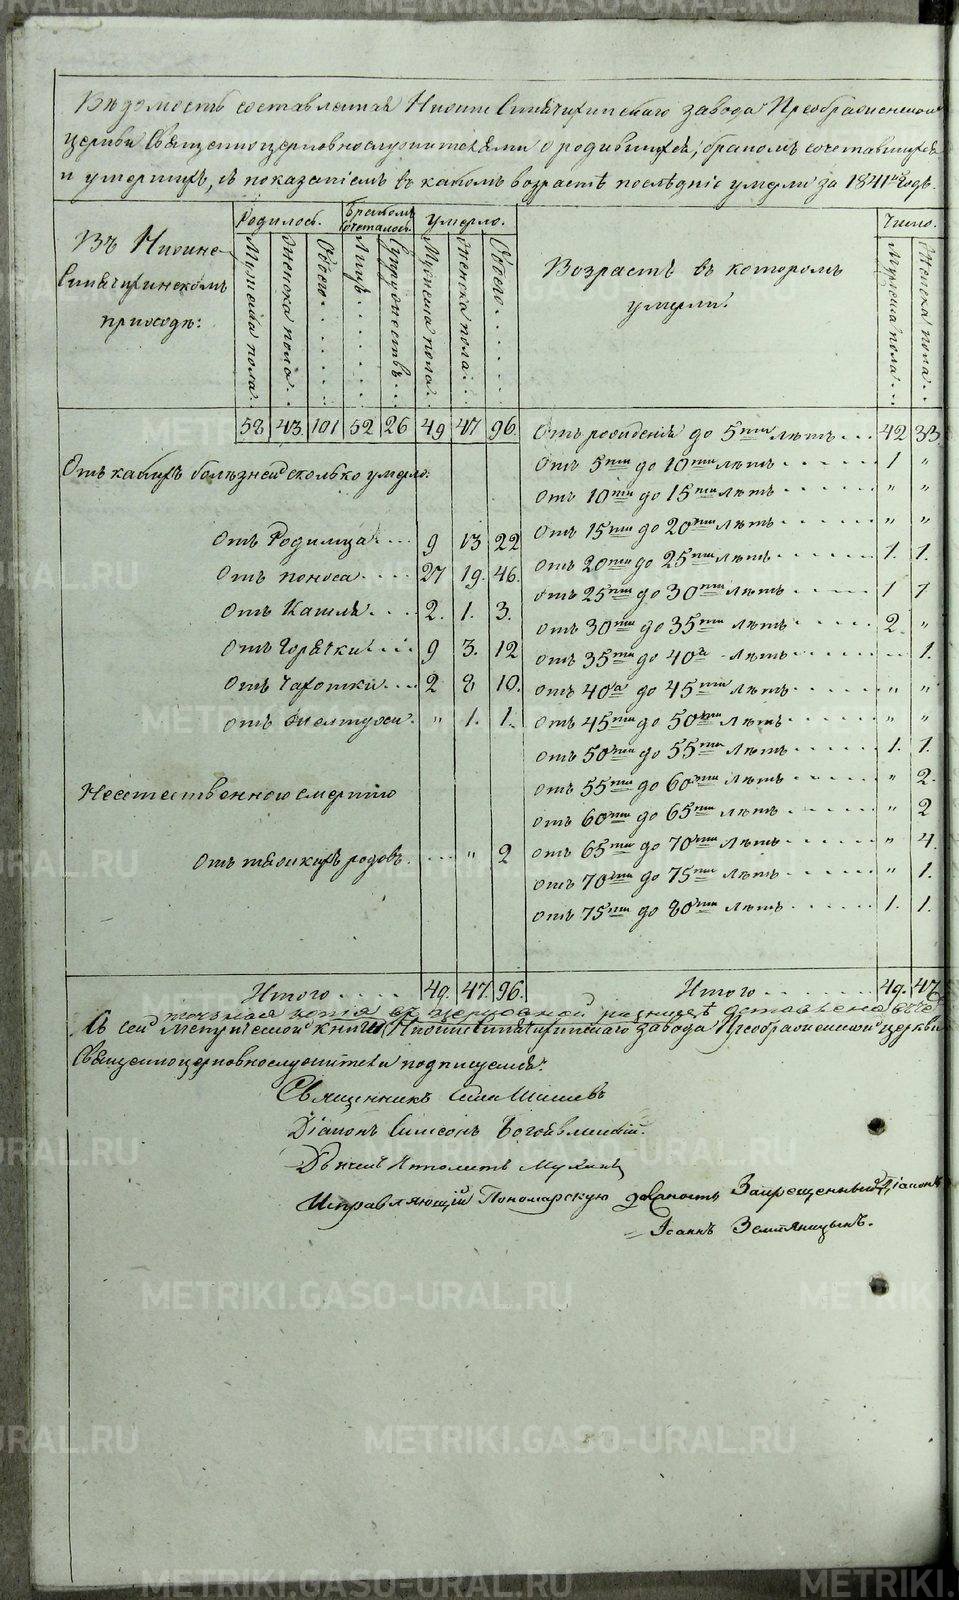 Вѣдомость составленная Нижне Синячихинскаго завода Преображенской
церкви Священноцерковнослужителями о родившихся, бракомъ сочетавшихся
и умершихъ, съ показаніемъ въ какомъ возрастѣ послѣдніе умерли за 1841й Годъ.
Въ Нижне-
Синячихинскомъ
приходѣ:
Родилось.
Бракомъ
сочеталось.
Умерло.
Мужеска пола
Женска пола
Обоего
Лицъ
Супружествъ
Мужеска пола
Женска пола
Обоего
Возрастъ въ которомъ
умерли:
Число.
Мужеска пола
Женска пола
58 43 101 52 26 49 47 96.
Отъ рожденія до 5ти лѣтъ 42 33
Отъ какихъ болѣзней сколько умерло:
Отъ 5ти до 10ти лѣтъ 1 "
Отъ 10ти до 15ти лѣтъ " "
Отъ Родимца 9 13 22
Отъ 15ти до 20ти лѣтъ " "
Отъ поноса 27 19. 46.
Отъ 20ти до 25ти лѣтъ 1. 1.
Отъ Кашля 2. 1. 3.
Отъ 25ти до 30ти лѣтъ 1 1
Отъ 30ти до 35ти лѣтъ 2. "
Отъ Горячки 9 3. 12
Отъ 35ти до 40а лѣтъ 1.
Отъ Чахотки 2 8 10.
Отъ 40а до 45ти лѣтъ " "
Отъ желтухи " 1. 1.
Отъ 45ти до 50ти лѣтъ " "
Отъ 50ти до 55ти лѣтъ 1. 1.
Неестественною смертію
Отъ 55ти до 60ти лѣтъ " 2.
Отъ 60ти до 65ти лѣтъ " 2
Отъ тяжкихъ родовъ " 2
Отъ 65ти до 70ти лѣтъ " 4.
Отъ 70ти до 75ти лѣтъ " 1.
Отъ 75ти до 80ти лѣтъ 1. 1.
Итого 49. 47. 96.
Итого 49. 47.
точная копія въ церковной ризницѣ оставлена
Къ сей Метрической книгѣ Нижне Синячихинскаго завода Преображенской церкви
Священноцерковнослужители подписуемся:
Священникъ Шишевъ
Діаконъ Симеонъ Богоявленскій.
Дьячекъ Ипполитъ Мухинъ
Исправляющій Пономарскую должность Запрещенный Діаконъ
Іоаннъ Земляницынъ.
METRIKI.GASO-URAL.RU